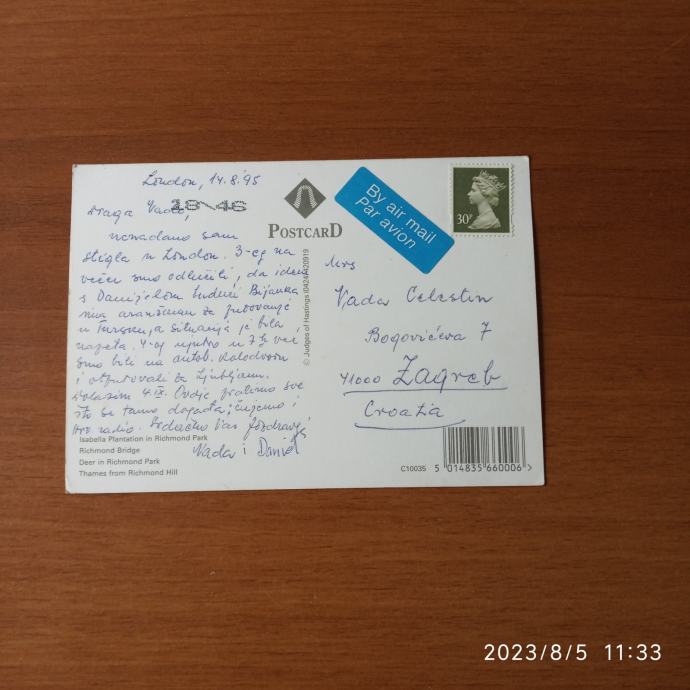 London, 14.8.'95
Draga Vado,
18\46
nenadano sam
stigla u London. 3-eg na
večer smo odlučili, da idem
s Danijelom budući Biljanka
nima aranžman za putovanje
u Tursku, a situacija je bila
napeta. 4-og ujutro u 7h već
smo bili na autob. kolodvoru
i otputovali za Ljubljanu.
Dolazim 4.IX. Ovdje pratimo sve
što se tamo događa; čujemo i
Hrv. radio. Srdačno Vas pozdravljaju
Nada i Daniel
Isabella Plantation in Richmond Park
Richmond Bridge
Deer in Richmond Park
Thames from Richmond Hill
POSTCARD
© Judges of Hastings (0424) 420919
By air mail
Par avion
30P
Mrs
Vada Celestin
Bogovićeva 7
41000 Zagreb
Croatia
C10035
5 014835 660006 >
2023/8/5 11:33